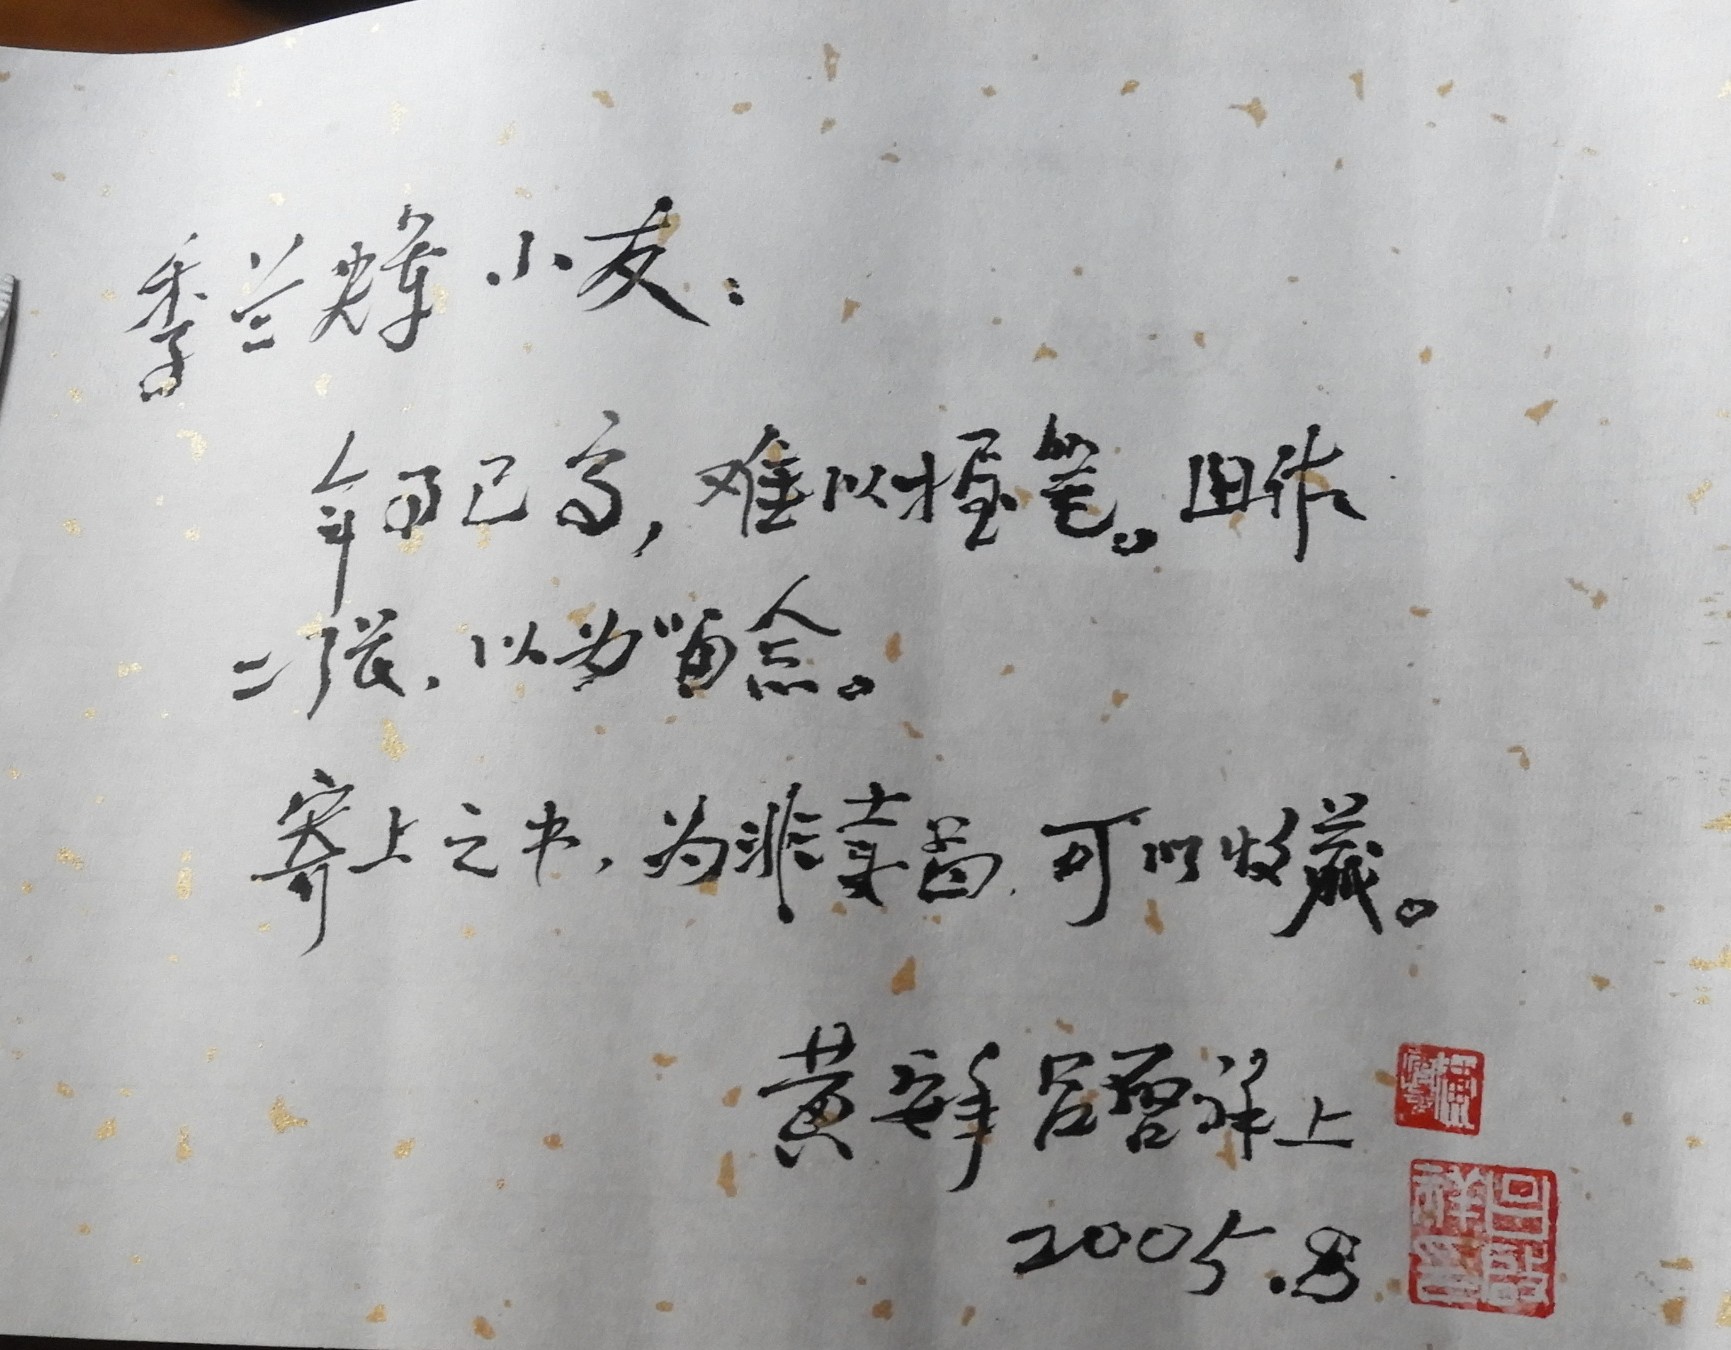 季兰辉小友：
年事已高，难以握笔。且作
二张，以为留念。
寄上之书，为非卖品，可以收藏。
黄 吕啓祥上
2005.8
吕啟祥印